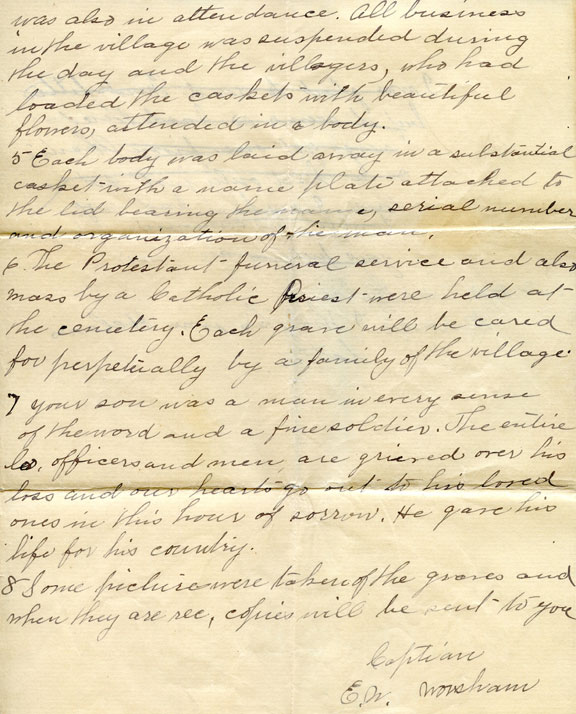 was also in attendance. All business
in the village was suspended during
the day and the villagers, who had
loaded the caskets with beautiful
flowers, attended in a body.
5 Each body was laid away in a substantial
casket with a name plate attached to
the lid bearing the name, serial number
and organization of the man.
6. The Protestant funeral service and also
mass by a Catholic Priest were held at
the cemetery. Each grave will be cared
for perpetually by a family of the village.
7 your son was a man in every sense
of the word and a fine soldier. The entire
Co, officers and men, are grieved over his
loss and our hearts go out to his loved
ones in this hour of sorrow. He gave his
life for his country.
8 Some picture were taken of the graves and
when they are rec, copies will be sent to you
Captian
E.W. Worsham